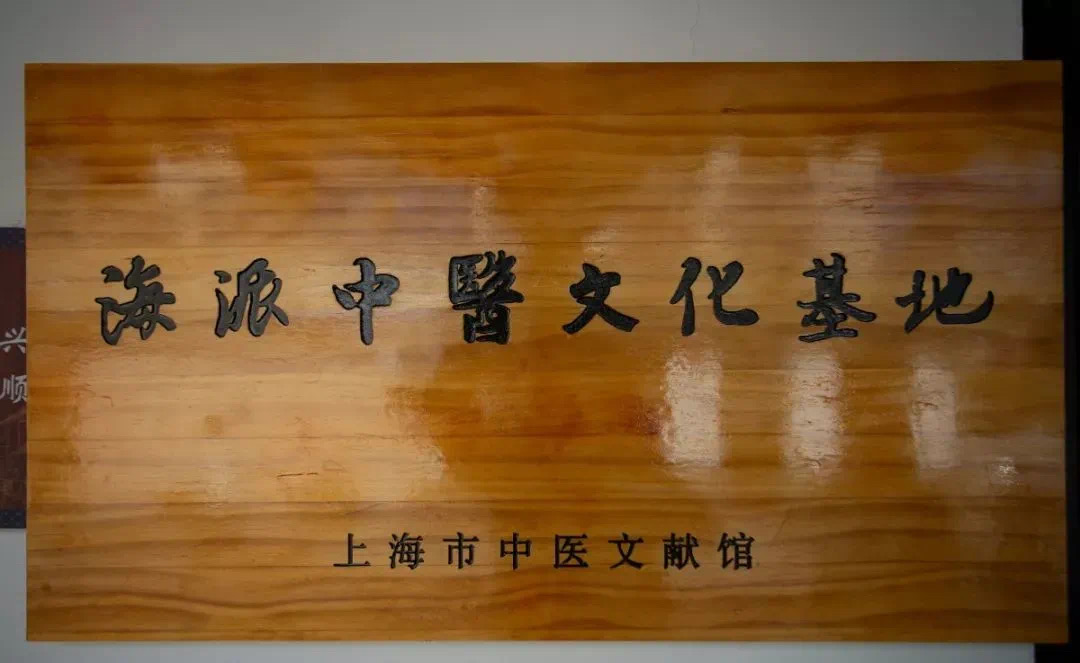 海派中醫文化基地
上海市中医文献馆
兴
顺